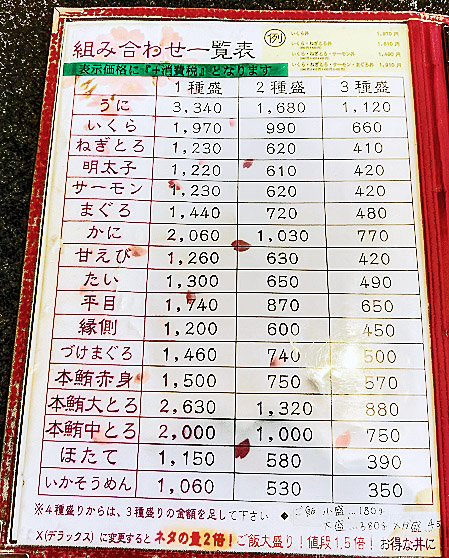 組み合わせ一覧表
例
いくら 1,970円
いくら・ねぎとろ丼 1,610円
いくら・ねぎとろ・サーモン丼
表示価格に『+消費税』となります
1種盛 2種盛 3種盛
うに 3,340 1,680 1,120
いくら 1,970 990 660
ねぎとろ 1,230 620 410
明太子 1,220 610 420
サーモン 1,230 620 420
まぐろ 1,440 720 480
かに 2,060 1,030 770
甘えび 1,260 630 420
たい 1,300 650 490
平目 1,740 870 650
縁側 1,200 600 450
づけまぐろ 1,460 740 500
本鮪赤身 1,500 750 570
本鮪大とろ 2,630 1,320 880
本鮪中とろ 2,000 1,000 750
ほたて 1,150 580 390
いかそうめん 1,060 530 350
※4種盛りからは、3種盛りの金額を足して下さい ◆ ご飯 小盛…180g
大盛…380g
X(デラックス)に変更するとネタの量2倍!ご飯大盛り!値段1,5倍!お得な丼に